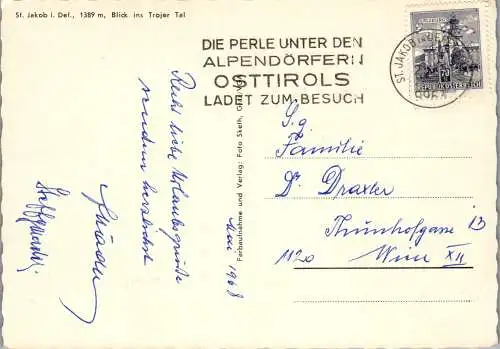 St. Jakob i. Def., 1389 m, Blick ins Trojer Tal
DIE PERLE UNTER DEN
ALPENDÖRFERN
OSTTIROLS
LADET ZUM BESUCH
ST. JAKOB IN DE
REPUBLIK ÖSTERREICH
Recht liebe Urlaubsgrüße
senden herzlichst
Mai 1968
Farbaufnahme und Verlag: Foto Sketh,
S.g.
Familie
Dr. Draxler
13
1120 Wien XII